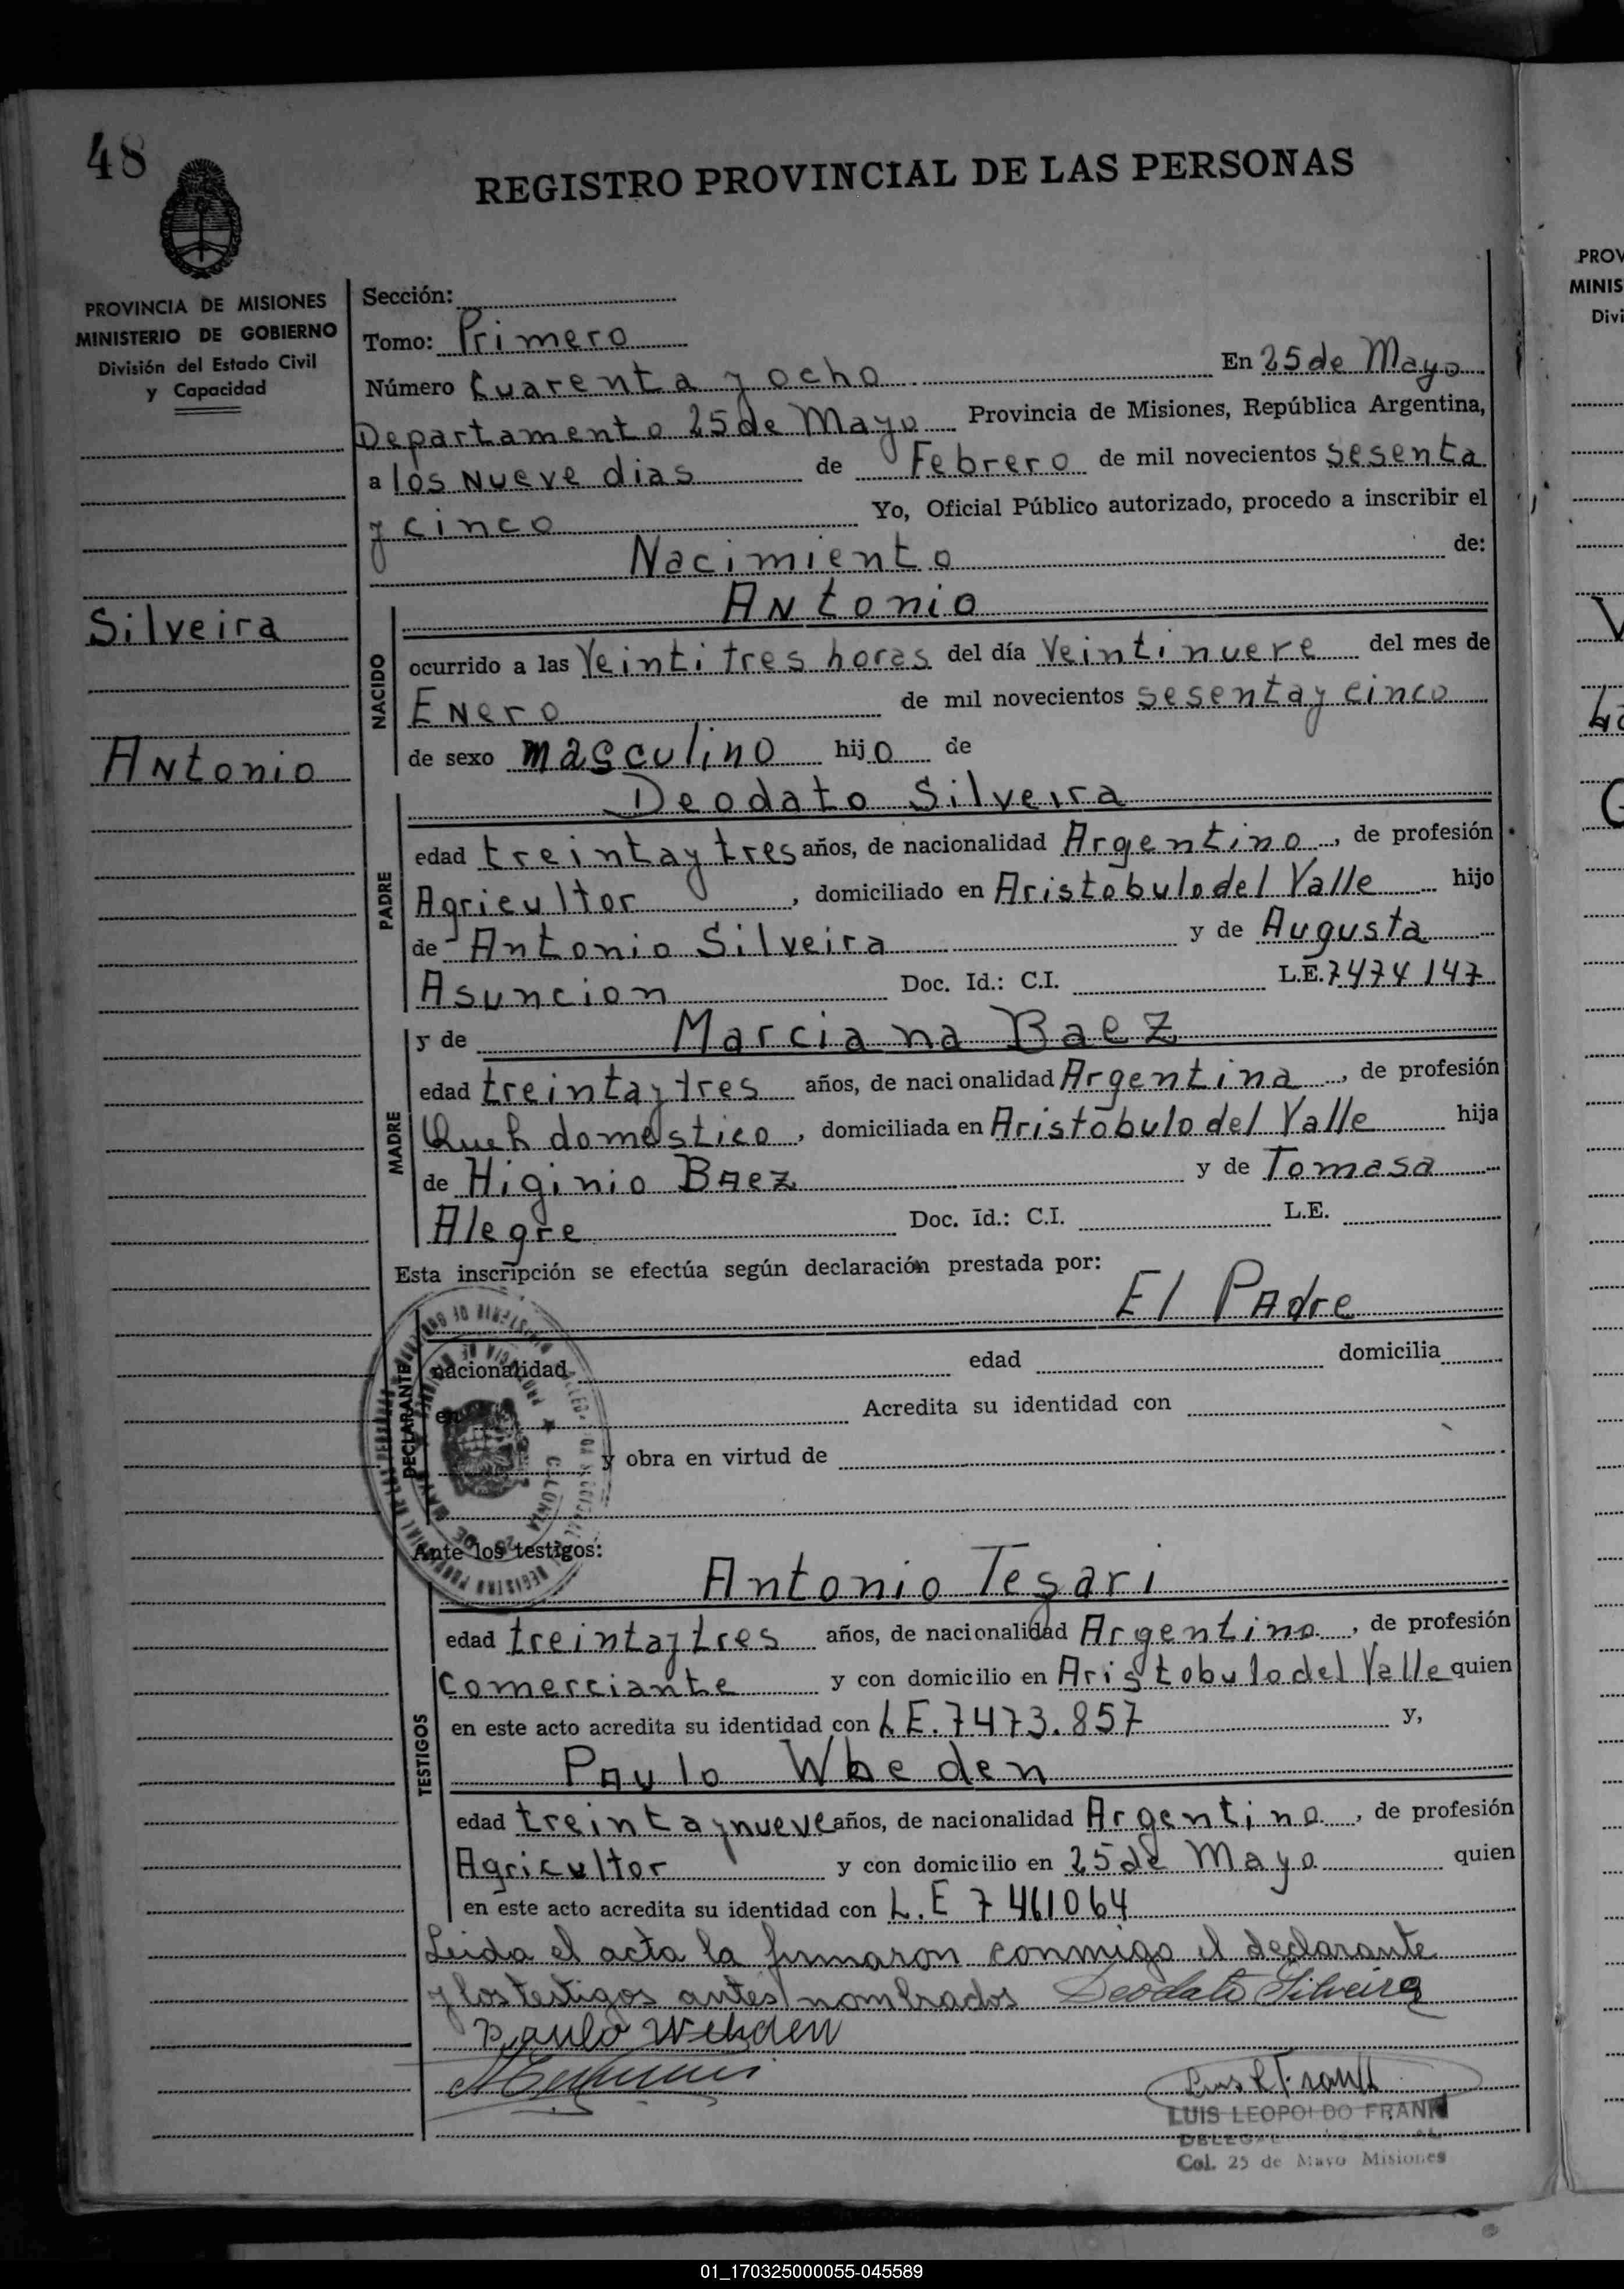 48
REGISTRO PROVINCIAL DE LAS PERSONAS
PROVINCIA DE MISIONES
MINISTERIO DE GOBIERNO
División del Estado Civil
y Capacidad
Silveira
Antonio
Sección:
Tomo: Primero
Número Cuarenta y ocho En 25 de Mayo
Departamento 25 de Mayo Provincia de Misiones, República Argentina,
a los Nueve dias de Febrero de mil novecientos sesenta
y cinco Yo, Oficial Público autorizado, procedo a inscribir el
Nacimiento de:
NACIDO
Antonio
ocurrido a las Veintitres horas del día Veintinueve del mes de
Enero de mil novecientos sesenta y cinco
de sexo masculino hijo de
PADRE
Deodato Silveira
edad treinta y tres años, de nacionalidad Argentino, de profesión
Agricultor, domiciliado en Aristobulo del Valle hijo
de Antonio Silveira y de Augusta
Asuncion Doc. Id.: C.I. L.E. 7474147
MADRE
y de Marciana Baez
edad treinta y tres años, de nacionalidad Argentina, de profesión
Queh domestico, domiciliada en Aristobulo del Valle hija
de Higinio Baez y de Tomasa
Alegre Doc. Id.: C.I. L.E.
Esta inscripción se efectúa según declaración prestada por:
El Padre
DECLARANTE
nacionalidad edad domicilia
en Acredita su identidad con
y obra en virtud de
Ante los testigos:
TESTIGOS
Antonio Tesari
edad treinta y tres años, de nacionalidad Argentino, de profesión
Comerciante y con domicilio en Aristobulo del Valle quien
en este acto acredita su identidad con L.E. 7473.857 y,
Paulo Wheden
edad treinta y nueve años, de nacionalidad Argentino, de profesión
Agricultor y con domicilio en 25 de Mayo quien
en este acto acredita su identidad con L.E 7461064
Leida el acta la firmaron conmigo el declarante
y los testigos antes nombrados Deodato Silveira
Paulo Wehden
Luis L Frank
LUIS LEOPOLDO FRANK
Col. 25 de Mayo Misiones
PROV
MINIS
Divi
01_170325000055-045589